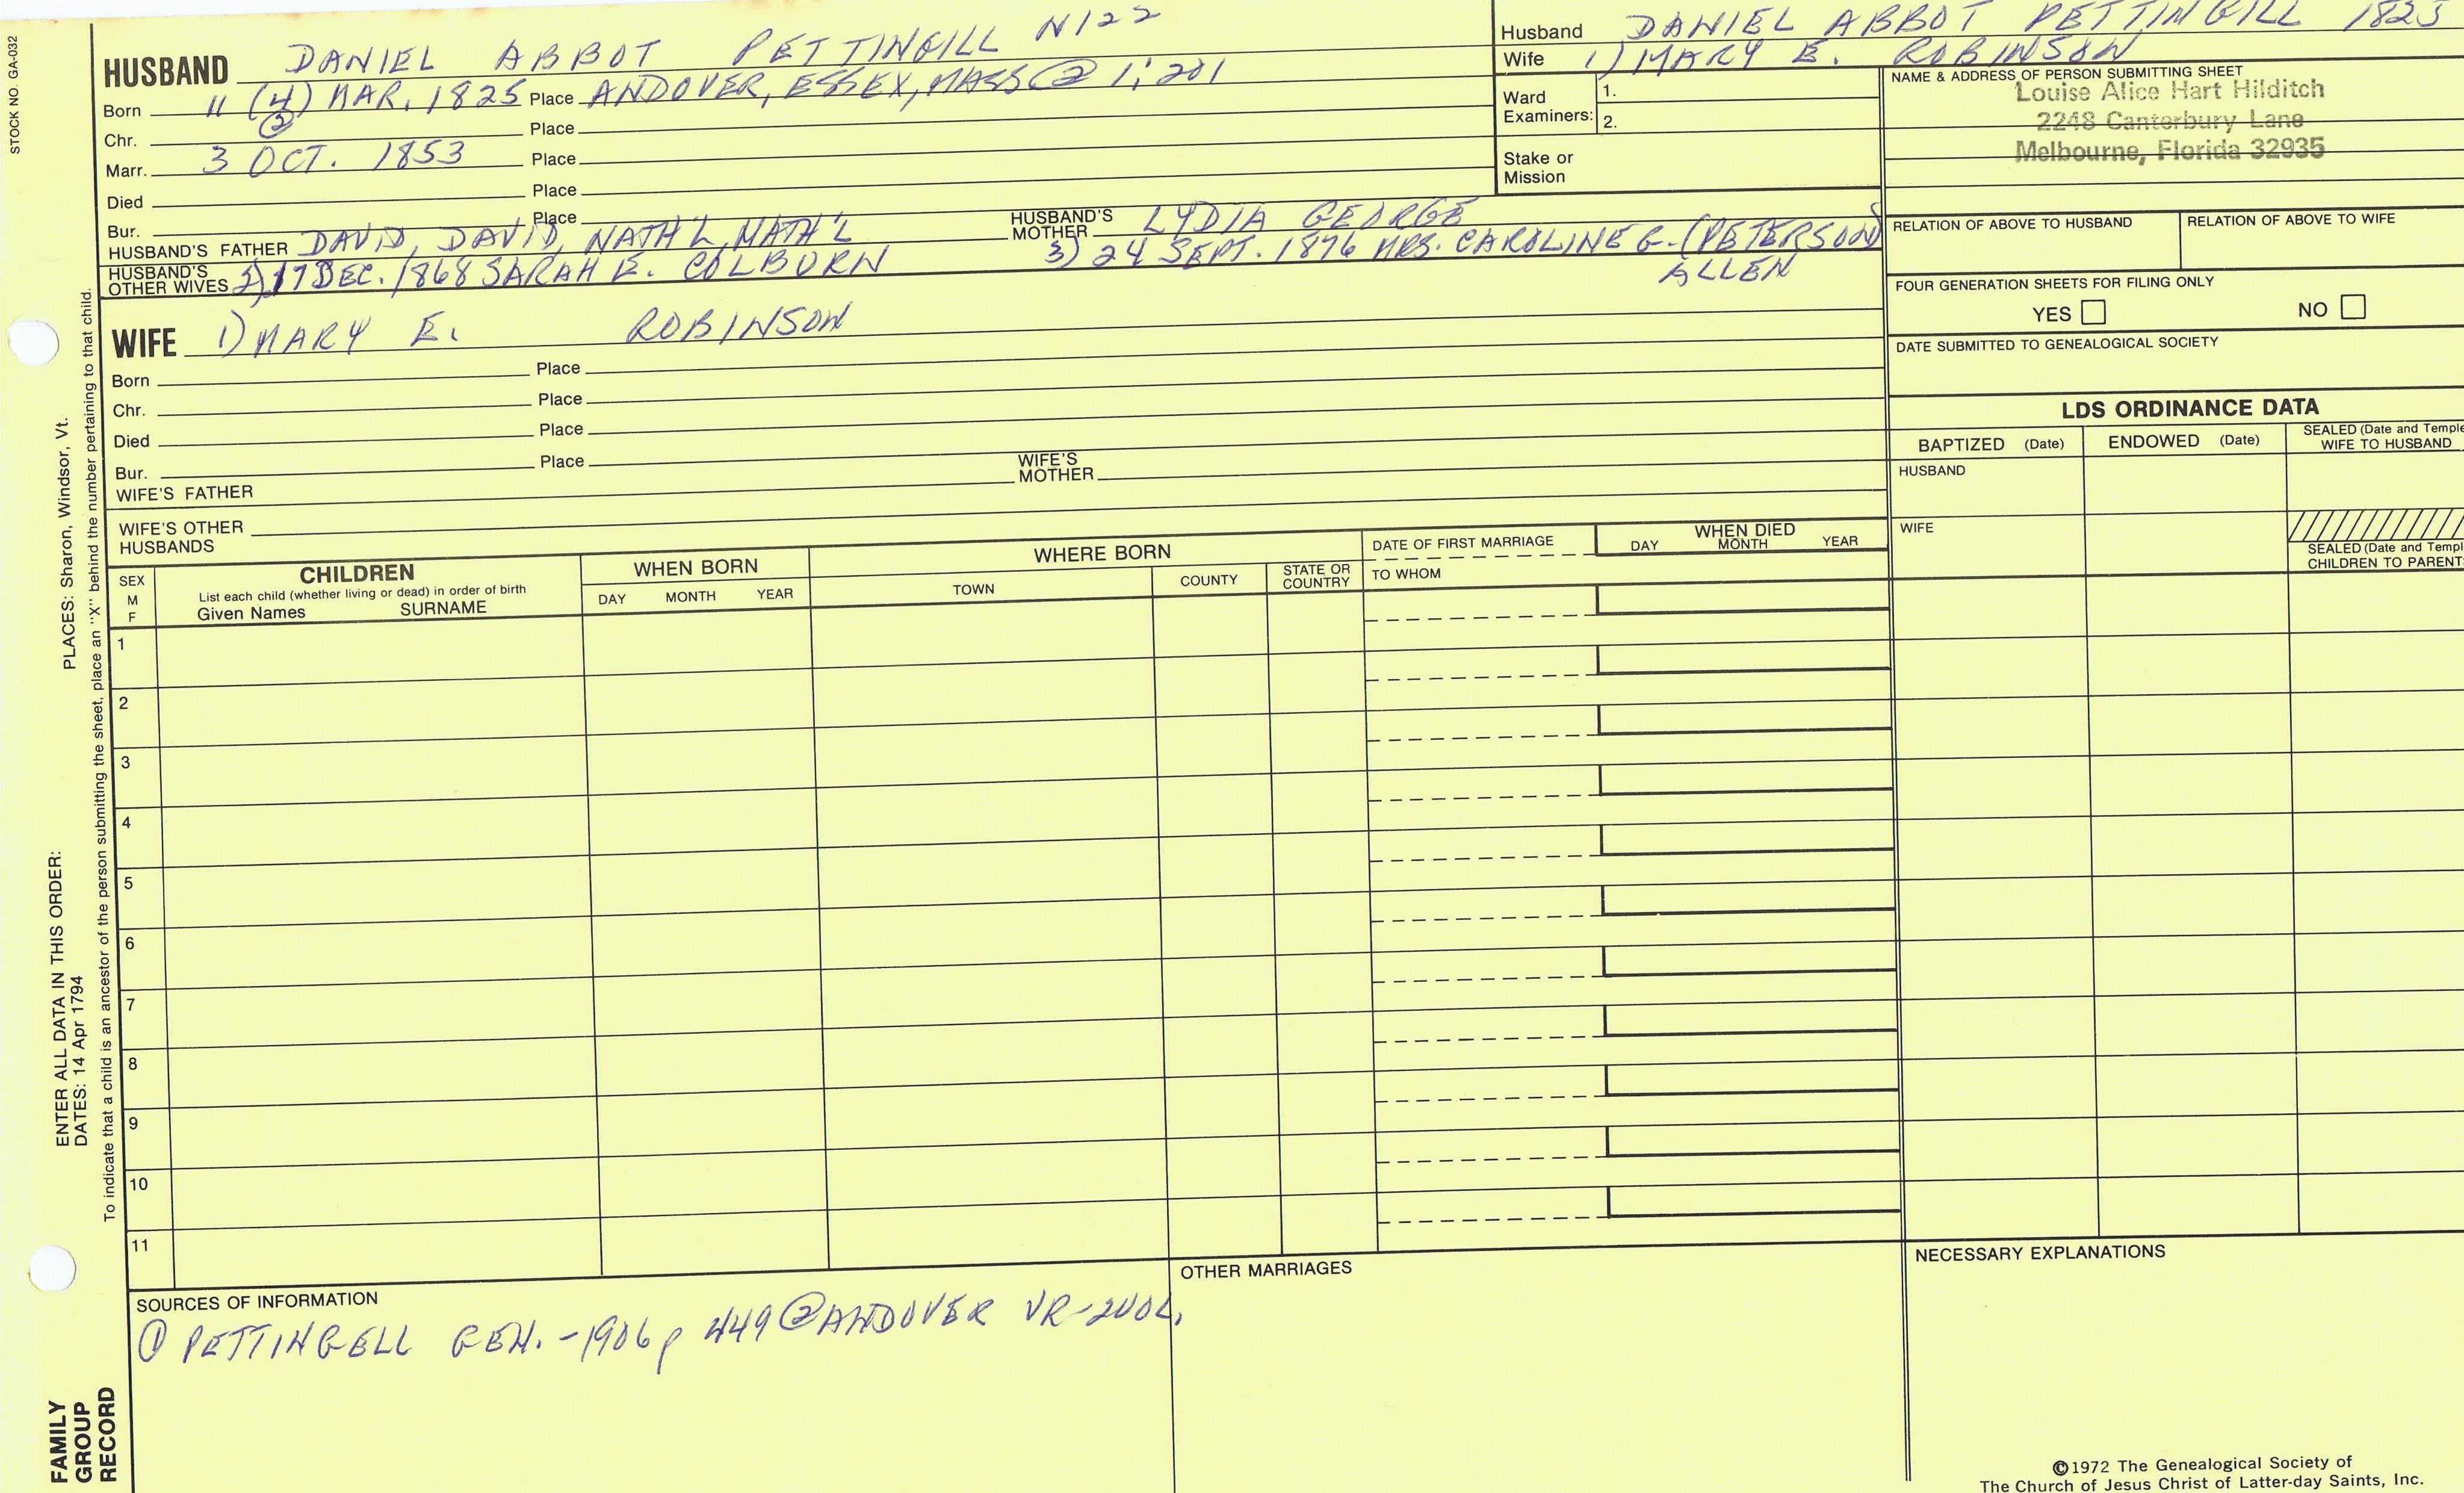 STOCK NO. GA-032
HUSBAND DANIEL ABBOT PETTINGILL N122
Born 11 (4) MAR. 1825 Place ANDOVER, ESSEX, MASS ② 1; 201
②
Chr. Place
Marr. 3 OCT. 1853 Place
Died Place
Bur. Place
HUSBAND'S FATHER DAVID, DAVID, NATH'L, NATH'L HUSBAND'S MOTHER LYDIA GEORGE
HUSBAND'S OTHER WIVES 2) 17 DEC. 1868 SARAH E. COLBURN 3) 24 SEPT. 1876 MRS. CAROLINE G. (PETERSON)
ALLEN
WIFE 1) MARY E. ROBINSON
Born Place
Chr. Place
Died Place
Bur. Place
WIFE'S FATHER WIFE'S MOTHER
WIFE'S OTHER HUSBANDS
Husband DANIEL ABBOT PETTINGILL 1825
Wife 1) MARY E. ROBINSON
Ward Examiners: 1.
2.
Stake or Mission
NAME & ADDRESS OF PERSON SUBMITTING SHEET
Louise Alice Hart Hilditch
2248 Canterbury Lane
Melbourne, Florida 32935
RELATION OF ABOVE TO HUSBAND RELATION OF ABOVE TO WIFE
FOUR GENERATION SHEETS FOR FILING ONLY
YES NO
DATE SUBMITTED TO GENEALOGICAL SOCIETY
LDS ORDINANCE DATA
BAPTIZED (Date) ENDOWED (Date) SEALED (Date and Temple
WIFE TO HUSBAND
HUSBAND
WIFE
SEALED (Date and Templ
CHILDREN TO PARENT
SEX
M
F
CHILDREN
List each child (whether living or dead) in order of birth
Given Names SURNAME
WHEN BORN
DAY MONTH YEAR
WHERE BORN
TOWN COUNTY STATE OR COUNTRY
DATE OF FIRST MARRIAGE
TO WHOM
WHEN DIED
DAY MONTH YEAR
1
2
3
4
5
6
7
8
9
10
11
SOURCES OF INFORMATION
① PETTINGELL GEN. - 1906 p 449 ② ANDOVER VR-2VOL.
OTHER MARRIAGES
NECESSARY EXPLANATIONS
©1972 The Genealogical Society of
The Church of Jesus Christ of Latter-day Saints, Inc.
ENTER ALL DATA IN THIS ORDER: PLACES: Sharon, Windsor, Vt.
DATES: 14 Apr 1794
To indicate that a child is an ancestor of the person submitting the sheet, place an "X" behind the number pertaining to that child.
FAMILY
GROUP
RECORD